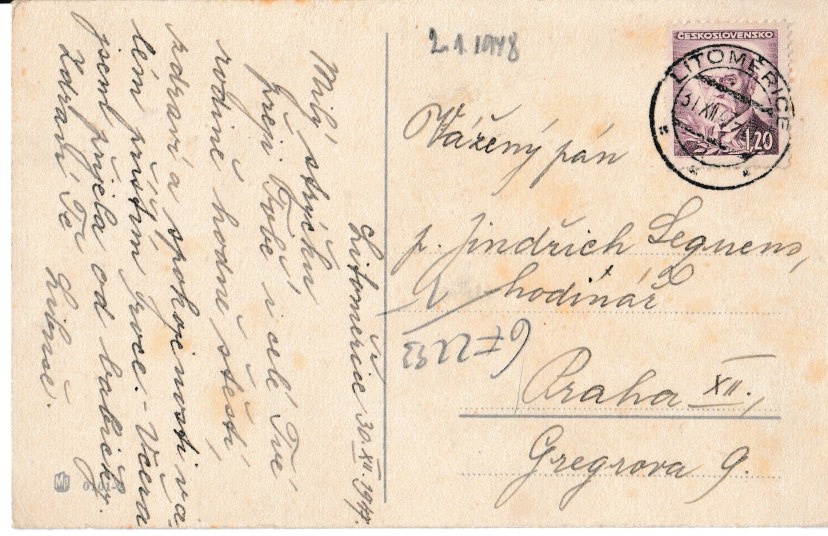 2.1.1948
ČESKOSLOVENSKO
LITOMĚŘICE
31.XII.47
1.20
Vážený pán
p. Jindřich Seguens,
hodinář
Praha XII.,
Gregrova 9.
Litoměřice 30.XII.1947.
Milý strýčku
přeji Tobě i celé Tvé
rodině hodně štěstí,
zdraví a spokojenosti v ce-
lém příštím roce.- Včera
jsem přijela od babičky.
Zdraví Tě Libuše.
MB